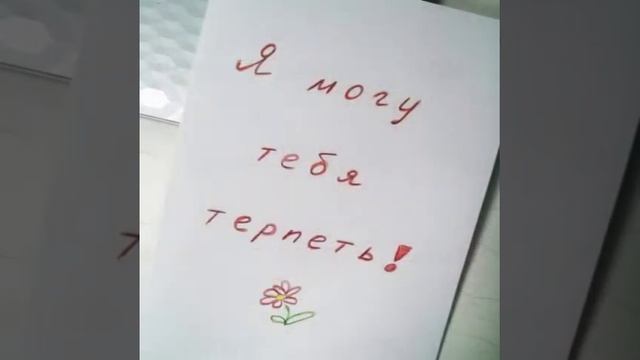 Я могу
тебя
терпеть!